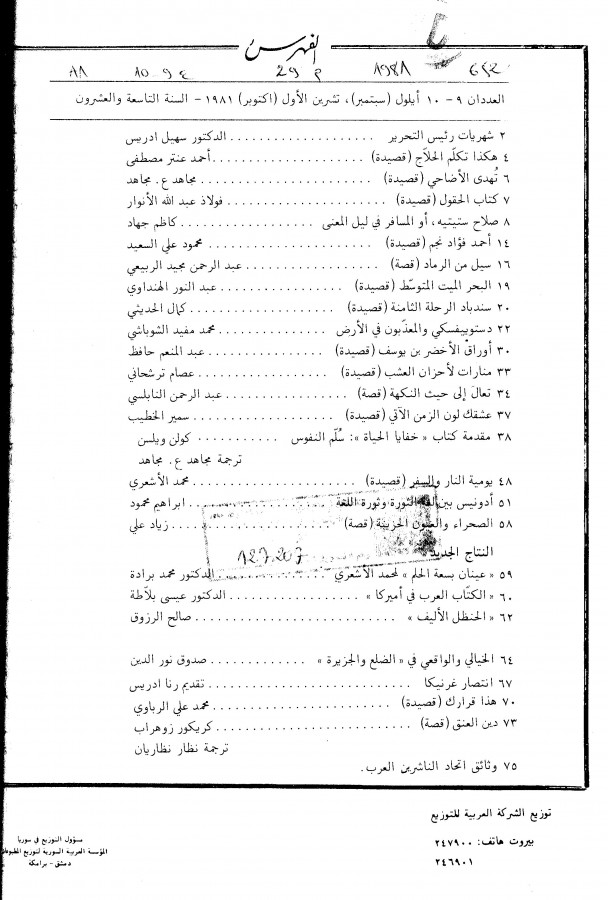 الفهرس
٨٨ 10-9 ع 29 م 1981 612
العددان ٩ - ١٠ أيلول (سبتمبر)، تشرين الأول (اكتوبر) ١٩٨١ - السنة التاسعة والعشرون
٢ شهريات رئيس التحرير . . . . . . . . . . . . . . . . . الدكتور سهيل ادريس
٤ هكذا تكلّم الحلاّج (قصيدة) . . . . . . . . . . . . . . . . . أحمد عنتر مصطفى
٦ تُهدى الأضاحي (قصيدة) . . . . . . . . . . . . . . . . . مجاهد ع. مجاهد
٧ كتاب الحقول (قصيدة) . . . . . . . . . . . . . . . . . فولاذ عبد الله الأنوار
٨ صلاح ستيتيه، أو المسافر في ليل المعنى . . . . . . . . . . . . . . . . . كاظم جهاد
١٤ أحمد فؤاد نجم (قصيدة) . . . . . . . . . . . . . . . . . محمود علي السعيد
١٦ سيل من الرماد (قصة) . . . . . . . . . . . . . . . . . عبد الرحمن مجيد الربيعي
١٩ البحر الميت المتوسّط (قصيدة) . . . . . . . . . . . . . . . . . عبد النور الهنداوي
٢٠ سندباد الرحلة الثامنة (قصيدة) . . . . . . . . . . . . . . . . . كمال الحديثي
٢٢ دستوييفسكي والمعذّبون في الأرض . . . . . . . . . . . . محمد مفيد الشوباشي
٣٠ أوراق الأخضر بن يوسف (قصيدة) . . . . . . . . . . . . عبد المنعم حافظ
٣٣ منارات لأحزان العشب (قصيدة) . . . . . . . . . . . . . . . . . عصام ترشحاني
٣٤ تعالَ إلى حيث النكهة (قصة) . . . . . . . . . . . . . . . . . عبد الرحمن النابلسي
٣٧ عشقك لون الزمن الآتي (قصيدة) . . . . . . . . . . . . . . . . . سمير الخطيب
٣٨ مقدمة كتاب « خفايا الحياة »: سُلّم النفوس . . . . . . . . . . . كولن ويلسن
ترجمة مجاهد ع. مجاهد
٤٨ يومية النار والسفر (قصيدة) . . . . . . . . . . . . . . . . . محمد الأشعري
٥١ أدونيس بين لغة الثورة وثورة اللغة . . . . . . . . . . . . ابراهيم محمود
٥٨ الصحراء والعيون الحزينة (قصة) . . . . . . . . . . . . . . . . . زياد علي
النتاج الجديد
127207
٥٩ « عينان بسعة الحلم » لمحمد الأشعري . . . . . . . . . . . . الدكتور محمد برادة
٦٠ « الكتّاب العرب في أميركا » . . . . . . . . . . . . . . . . . الدكتور عيسى بلاّطة
٦٢ « الحنظل الأليف » . . . . . . . . . . . . . . . . . صالح الرزوق
٦٤ الخيالي والواقعي في « الضلع والجزيرة » . . . . . . . . . . . . صدوق نور الدين
٦٧ انتصار غرنيكا . . . . . . . . . . . . . . . . . تقديم رنا ادريس
٧٠ هذا قرارك (قصيدة) . . . . . . . . . . . . . . . . . محمد علي الرباوي
٧٣ دين العنق (قصة) . . . . . . . . . . . . . . . . . كريكور زوهراب
ترجمة نظار نظاريان
٧٥ وثائق اتحاد الناشرين العرب.
توزيع الشركة العربية للتوزيع
بيروت هاتف: ٢٤٧٩٠٠
٢٤٦٩٠١
مسؤول التوزيع في سوريا
المؤسسة العربية السورية لتوزيع المطبوعات
دمشق - برامكة